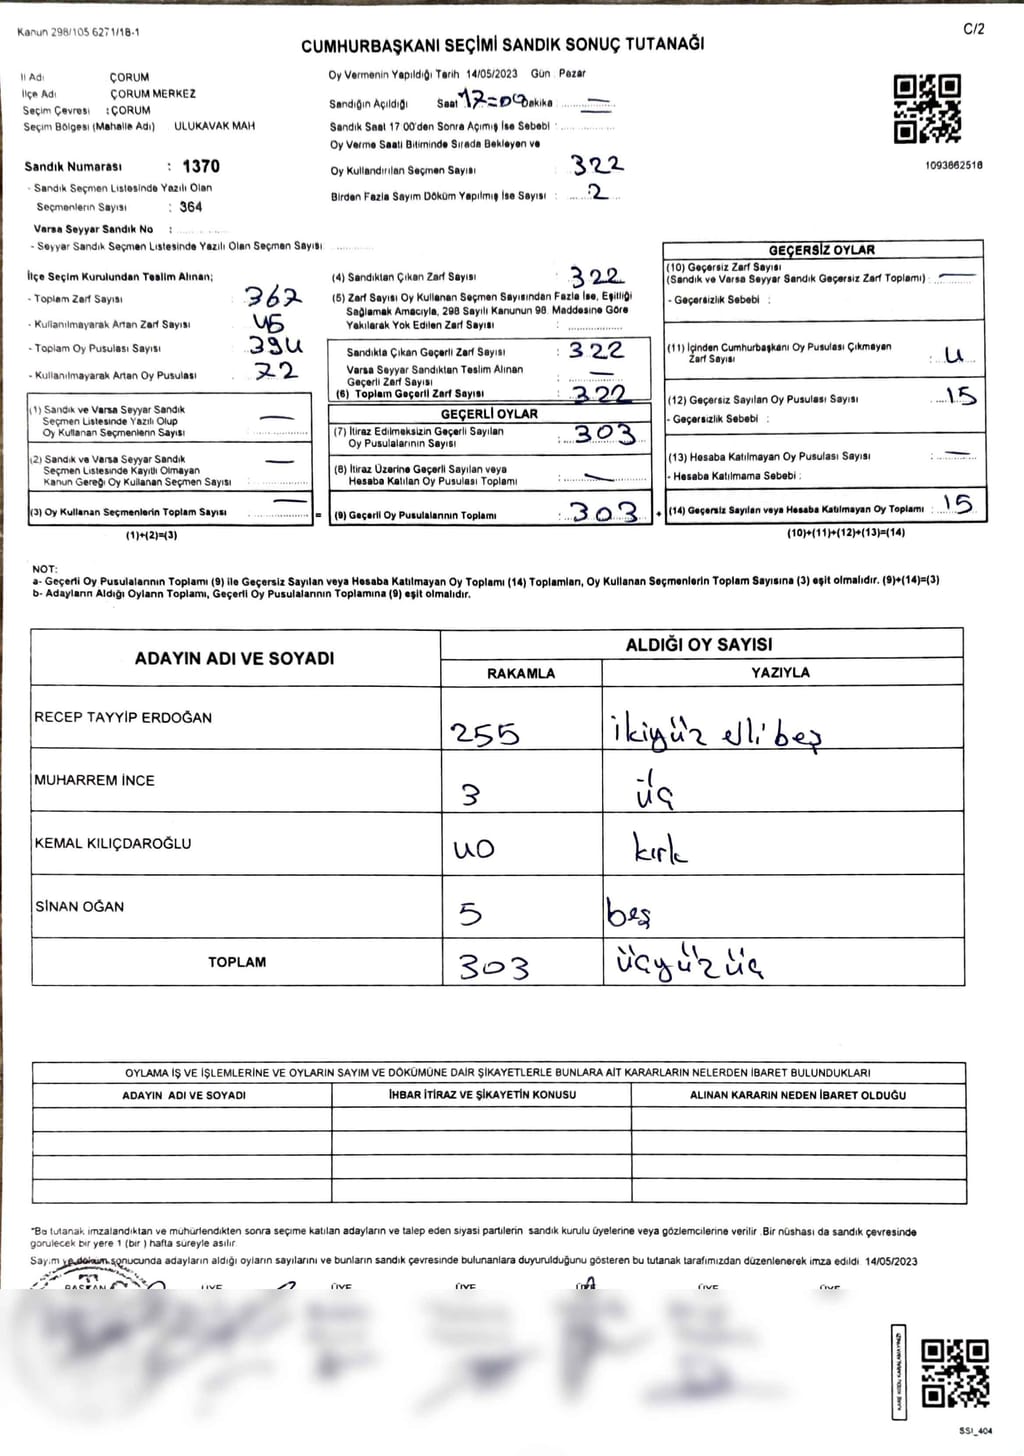 Kanun 298/105 6271/18-1
C/2
CUMHURBAŞKANI SEÇİMİ SANDIK SONUÇ TUTANAĞI
İl Adı ÇORUM
İlçe Adı ÇORUM MERKEZ
Seçim Çevresi : ÇORUM
Seçim Bölgesi (Mahalle Adı) ULUKAVAK MAH
Sandık Numarası : 1370
- Sandık Seçmen Listesinde Yazılı Olan
Seçmenlerin Sayısı : 364
Varsa Seyyar Sandık No :
- Seyyar Sandık Seçmen Listesinde Yazılı Olan Seçmen Sayısı
Oy Vermenin Yapıldığı Tarih 14/05/2023 Gün : Pazar
Sandığın Açıldığı Saat 17=00 Dakika —
Sandık Saat 17 00'den Sonra Açımış İse Sebebi :
Oy Verme Saati Bitiminde Sırada Bekleyen ve
Oy Kullandırılan Seçmen Sayısı : 322
Birden Fazla Sayım Döküm Yapılmış İse Sayısı : 2
1093662516
İlçe Seçim Kurulundan Teslim Alınan;
- Toplam Zarf Sayısı : 367
- Kullanılmayarak Artan Zarf Sayısı : 45
- Toplam Oy Pusulası Sayısı : 394
- Kullanılmayarak Artan Oy Pusulası : 72
(1) Sandık ve Varsa Seyyar Sandık
Seçmen Listesinde Yazılı Olup
Oy Kullanan Seçmenlerın Sayısı —
(2) Sandık ve Varsa Seyyar Sandık
Seçmen Listesinde Kayıtlı Olmayan
Kanun Gereği Oy Kullanan Seçmen Sayısı : —
(3) Oy Kullanan Seçmenlerin Toplam Sayısı —
(1)+(2)=(3)
(4) Sandıktan Çıkan Zarf Sayısı : 322
(5) Zarf Sayısı Oy Kullanan Seçmen Sayısından Fazla İse, Eşitliği
Sağlamak Amacıyla, 298 Sayılı Kanunun 98. Maddesine Göre
Yakılarak Yok Edilen Zarf Sayısı :
Sandıkta Çıkan Geçerli Zarf Sayısı : 322
Varsa Seyyar Sandıktan Teslim Alınan
Geçerli Zarf Sayısı : —
(6) Toplam Geçerli Zarf Sayısı : 322
GEÇERLİ OYLAR
(7) İtiraz Edilmeksizin Geçerli Sayılan
Oy Pusulalarının Sayısı : 303
(8) İtiraz Üzerine Geçerli Sayılan veya
Hesaba Katılan Oy Pusulası Toplamı : —
= (9) Geçerli Oy Pusulalarının Toplamı : 303 +
GEÇERSİZ OYLAR
(10) Geçersiz Zarf Sayısı
(Sandık ve Varsa Seyyar Sandık Geçersiz Zarf Toplamı) : —
- Geçersizlik Sebebi :
(11) İçinden Cumhurbaşkanı Oy Pusulası Çıkmayan
Zarf Sayısı : 4
(12) Geçersiz Sayılan Oy Pusulası Sayısı 15
- Geçersizlik Sebebi :
(13) Hesaba Katılmayan Oy Pusulası Sayısı : —
- Hesaba Katılmama Sebebi :
(14) Geçersiz Sayılan veya Hesaba Katılmayan Oy Toplamı : 15
(10)+(11)+(12)+(13)=(14)
NOT:
a- Geçerli Oy Pusulalarının Toplamı (9) ile Geçersiz Sayılan veya Hesaba Katılmayan Oy Toplamı (14) Toplamları, Oy Kullanan Seçmenlerin Toplam Sayısına (3) eşit olmalıdır. (9)+(14)=(3)
b- Adayların Aldığı Oyların Toplamı, Geçerli Oy Pusulalarının Toplamına (9) eşit olmalıdır.
ADAYIN ADI VE SOYADI ALDIĞI OY SAYISI
RAKAMLA YAZIYLA
RECEP TAYYİP ERDOĞAN 255 ikiyüz elli beş
MUHARREM İNCE 3 üç
KEMAL KILIÇDAROĞLU 40 kırk
SİNAN OĞAN 5 beş
TOPLAM 303 üçyüz üç
OYLAMA İŞ VE İŞLEMLERİNE VE OYLARIN SAYIM VE DÖKÜMÜNE DAİR ŞİKAYETLERLE BUNLARA AİT KARARLARIN NELERDEN İBARET BULUNDUKLARI
ADAYIN ADI VE SOYADI İHBAR İTİRAZ VE ŞİKAYETİN KONUSU ALINAN KARARIN NEDEN İBARET OLDUĞU
*Bu tutanak imzalandıktan ve mühürlendikten sonra seçime katılan adayların ve talep eden siyasi partilerin sandık kurulu üyelerine veya gözlemcilerine verilir. Bir nüshası da sandık çevresinde
görülecek bir yere 1 (bir ) hafta süreyle asılır.
Sayım ve döküm sonucunda adayların aldığı oyların sayılarını ve bunların sandık çevresinde bulunanlara duyurulduğunu gösteren bu tutanak tarafımızdan düzenlenerek imza edildi 14/05/2023
BAŞKAN ÜYE ÜYE ÜYE ÜYE ÜYE ÜYE
SSI_404